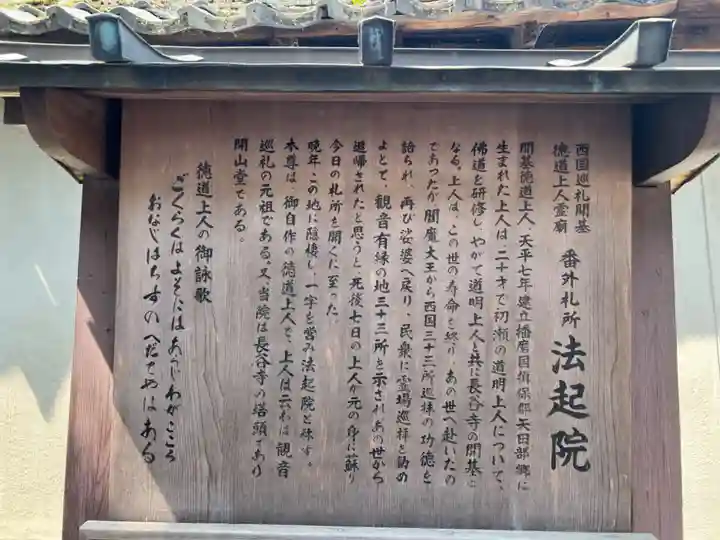 西国巡礼開基
徳道上人霊廟
番外札所 法起院
開基徳道上人、天平七年建立播磨国揖保郡矢田部郷に
生まれた上人は、二十才で初瀬の道明上人について、
佛道を研修し、やがて道明上人と共に長谷寺の開基と
なる。上人は、この世の寿命を終り、あの世へ赴いたの
であったが閻魔大王から西国三十三所巡拝の功徳を
語られ、再び娑婆へ戻り、民衆に霊場巡拝を勧め
よとて、観音有縁の地三十三所を示されあの世から
追帰されたと思うと、死後七日の上人が元の身に蘇り
今日の札所を開くに至った。
晩年、この地に隠棲し、一宇を営み法起院と称す。
本尊は、御自作の徳道上人像、上人は云わば観音
巡礼の元祖である。又、当院は長谷寺の塔頭であり
開山堂である。
徳道上人の御詠歌
ごくらくはよそにはあらじわがこころ
おなじはちすのへだてやはある